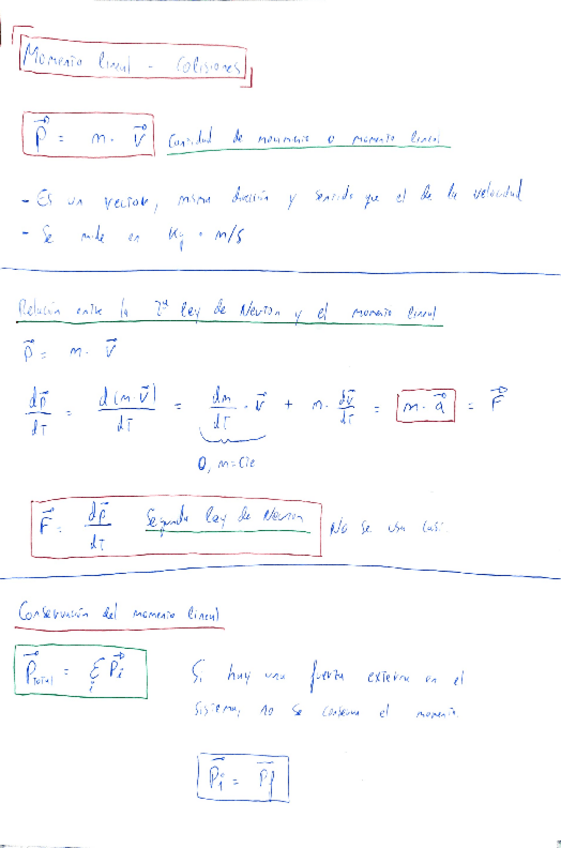 Momento lineal - Colisiones
p⃗ = m · v⃗ Cantidad de movimiento o momento lineal
- Es un vector, misma dirección y sentido que el de la velocidad
- Se mide en Kg · m/s
Relación entre la 2ª ley de Newton y el momento lineal
p⃗ = m · v⃗
dp⃗/dt = d(m·v⃗)/dt = dm/dt · v⃗ + m · dv⃗/dt = m · a⃗ = F⃗
0, m=cte
F⃗ = dp⃗/dt Segunda ley de Newton No se usa casi
Conservación del momento lineal
P⃗total = Σi P⃗i Si hay una fuerza externa en el
sistema, no se conserva el momento
P⃗i = P⃗f